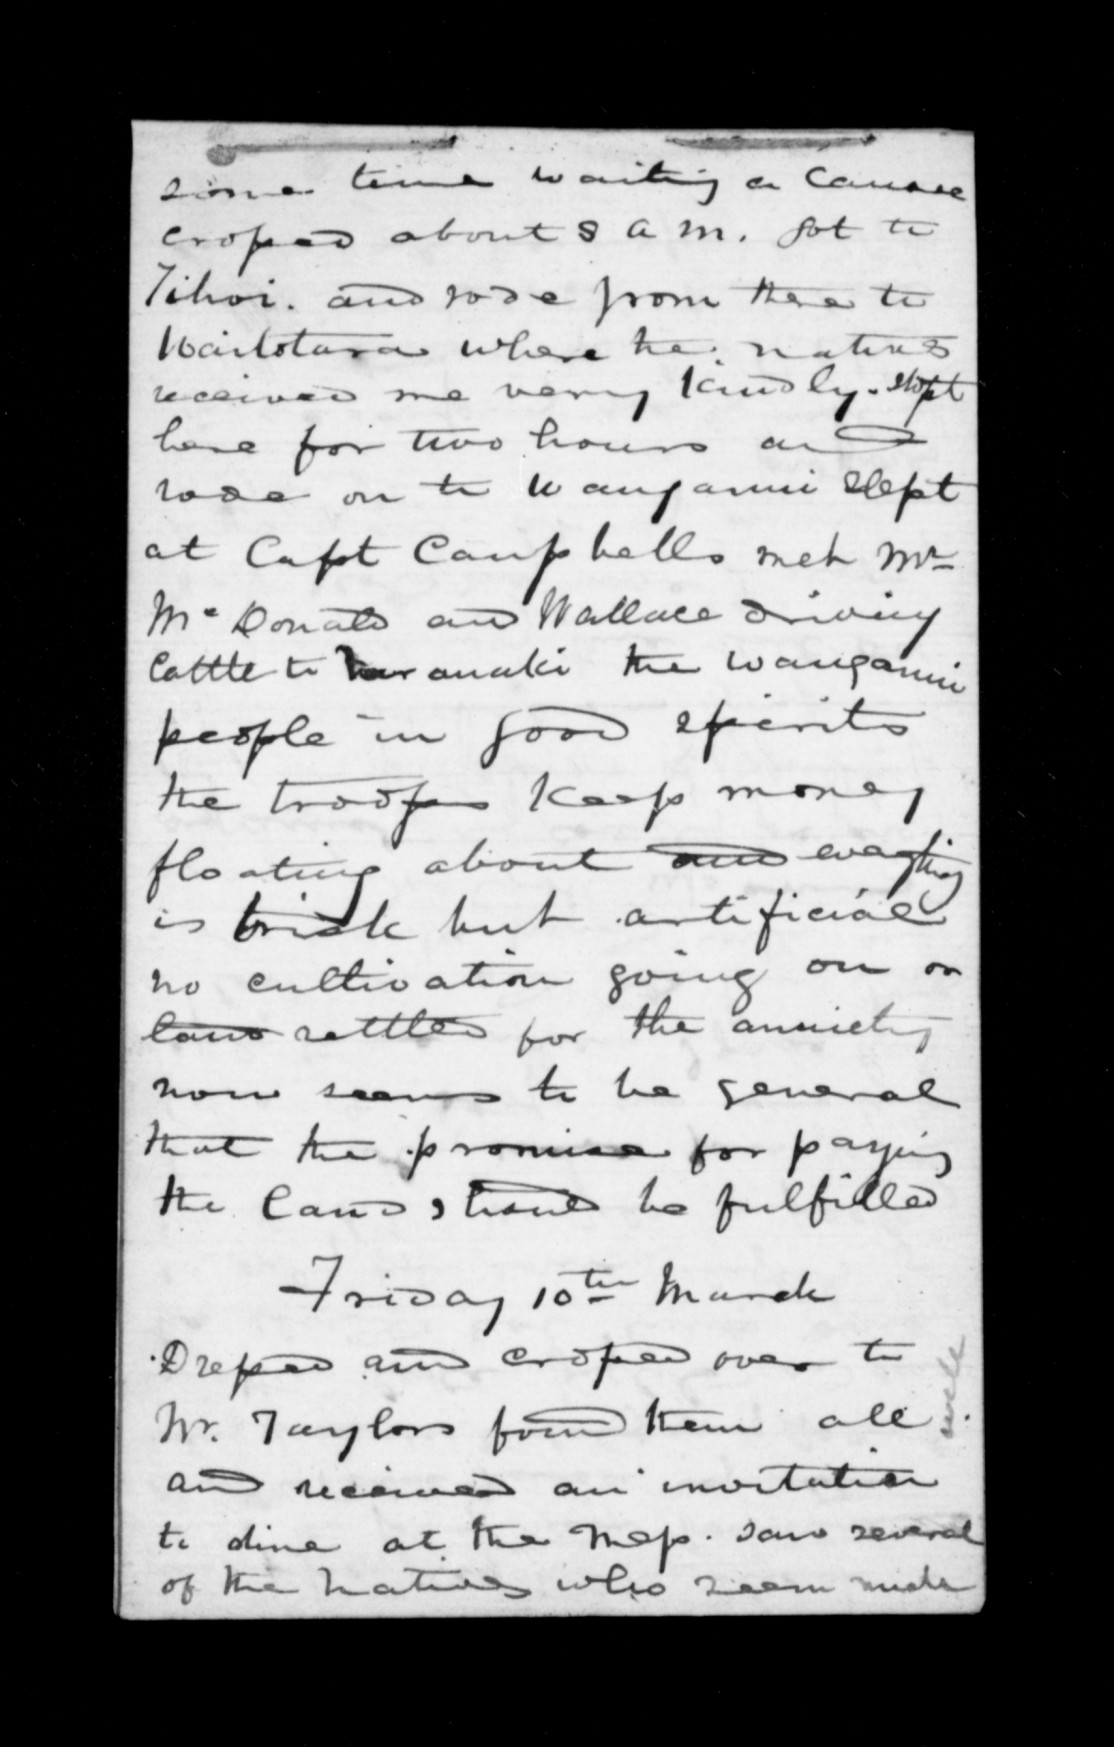 some time waiting a Canoe
crossed about 8 A M. got to
Tihoi. and rode from there to
Waitotara where he natives
received me very kindly. stopt
here for two hours and
rode on to Wanganui slept
at Capt Campbells met Mr
McDonald and Wallace driving
Cattle to Taranaki the Wanganui
people in good spirits
the troops keep money
floating about and everything
is brisk but artificial
no cultivation going on or
land settled for the anxiety
now seems to be general
that the promise for paying
the land should be fulfilled
Friday 10th March
Dressed and crossed over to
Mr. Taylors found them all well
and received an invitation
to dine at the Mess. saw several
of the Natives who seem much